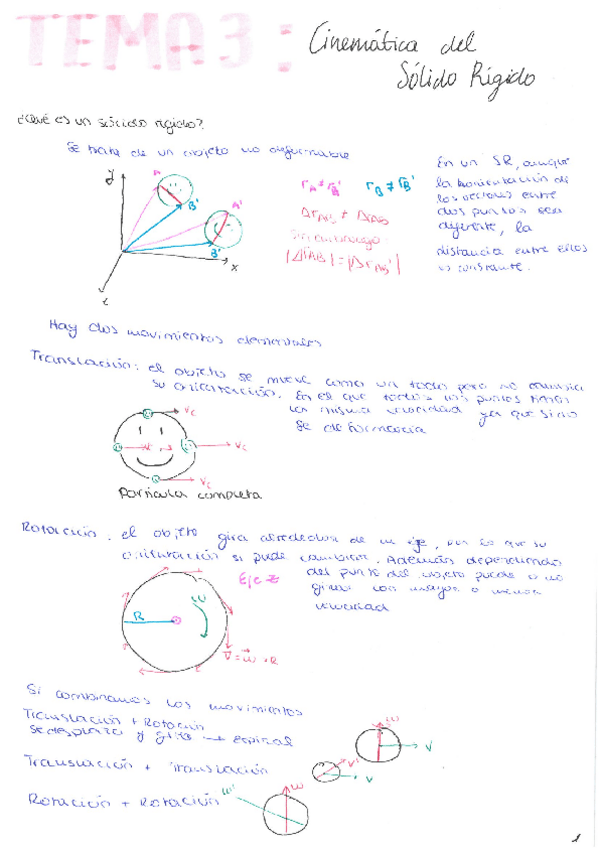 TEMA 3: Cinemática del
Sólido Rígido
¿Qué es un sólido rígido?
Se trata de un objeto no deformable
y
A
B'
A'
B'
x
z
r_A ≠ r_B' r_B ≠ r_B'
Δr_AB ≠ Δr_AB
sin embargo
|Δr_AB| = |Δr_AB'|
En un SR, aunque
la orientación de
los vectores entre
dos puntos sea
diferente, la
distancia entre ellos
es constante.
Hay dos movimientos elementales
Translación: el objeto se mueve como un todo pero no cambia
su orientación. En el que todos los puntos tienen
la misma velocidad ya que si no
se deformaría
v_c
v_c
v_c
Partícula completa
Rotación: el objeto gira alrededor de un eje, por lo que su
orientación si puede cambiar. Además dependiendo
del punto del objeto puede o no
girar con mayor o menor
velocidad
Eje z
ω
R
v = ω × R
Si combinamos los movimientos
Translación + Rotación
se desplaza y gira → espiral
ω
v
Translación + Translación
v'
v
Rotación + Rotación
ω'
ω
1